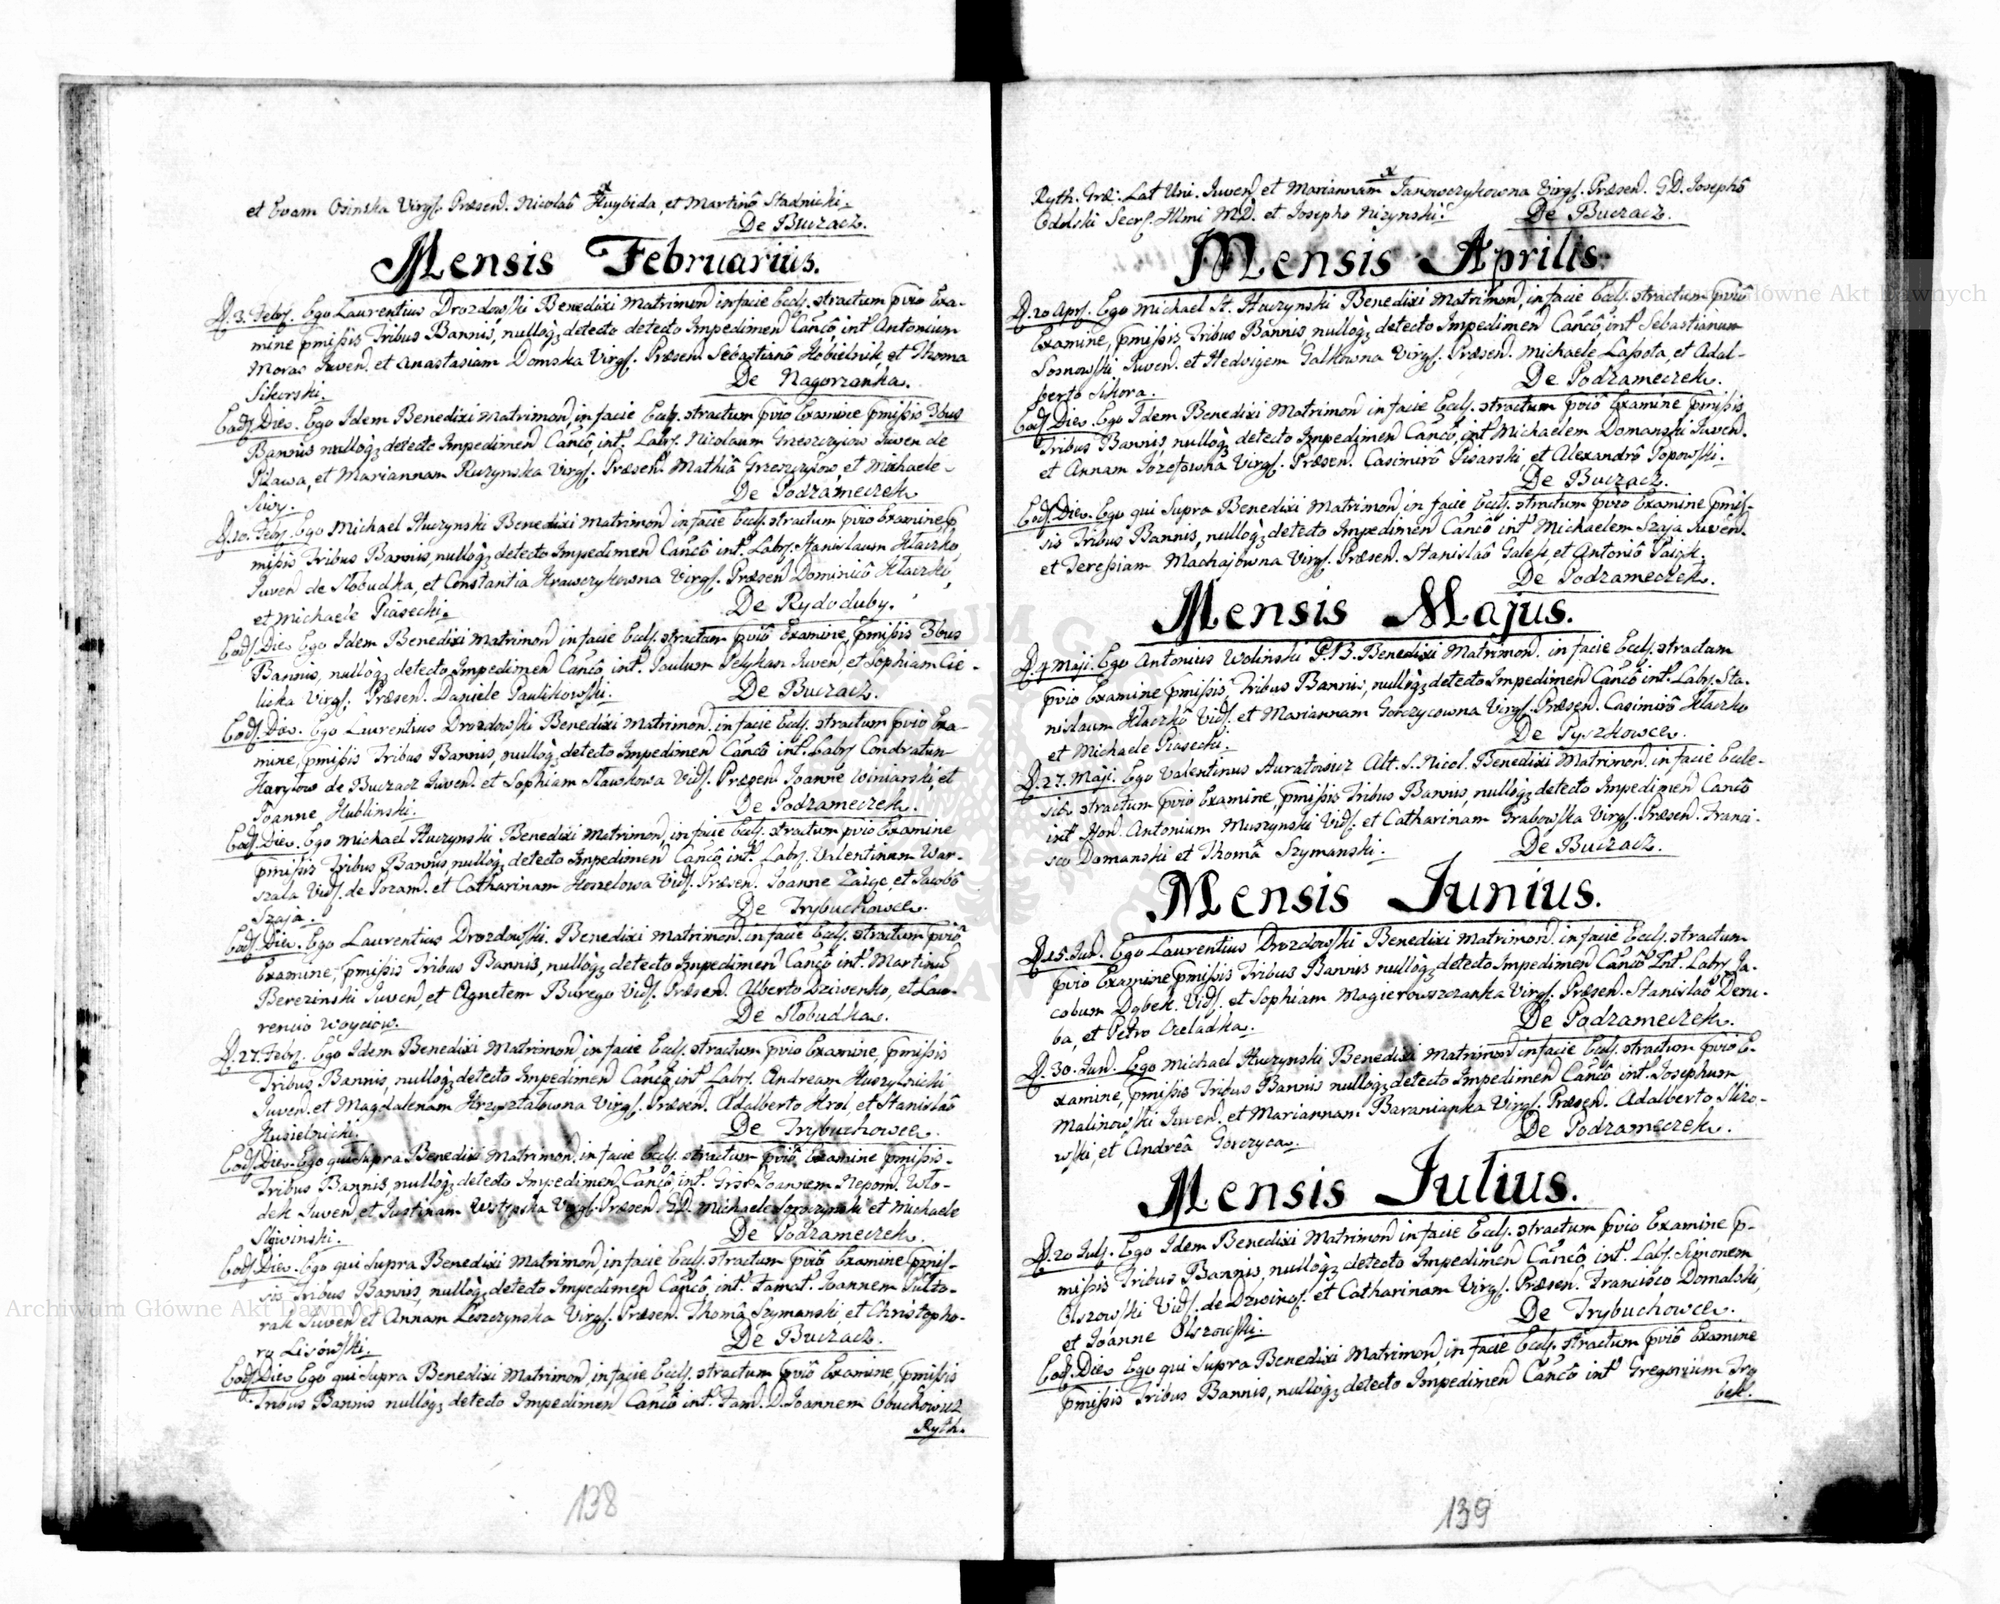 et Evam Osinska Virg. Præsen. Nicolaô Huybida, et Martinô Stadnicki.
De Buczacz.
Mensis Februarius.
D. 3. Febr. Ego Laurentius Drozdowski Benedixi Matrimon in facie Eccl. stractum pviô Exa-
mine pmissis Tribus Bannis, nulloq; detecto detecto Impedimen Cancô int. Antonium
Moras Juven. et Anastasiam Domska Virg. Præsen. Sebastianô Kobielnik, et Thoma
Sikorski.
De Nagorzanka.
Eod. Die. Ego Idem Benedixi Matrimon, in facie Eccl. stractum pviô Examine pmissis 3bus
Bannis nulloq; detecto Impedimen Cancô, int. Labr. Nicolaum Grzeszczyiow Juven de
Pilawa, et Mariannam Ruzynska Virg. Præsen. Mathia Grzeszczyiow, et Michaele
Siwy.
De Podzameczek
D. 10. Febr. Ego Michael Huczynski Benedixi Matrimon in facie Eccl. stractum pviô Examine p
missis, Tribus Bannis, nulloq; detecto Impedimen Cancô int. Labr. Stanislaum Klaczko
Juven de Slobudka, et Constantia Krawczykowna Virg. Præsen Dominicô Klaczko,
et Michaele Piasecki.
De Rydoduby.
Eod. Die Ego Idem Benedixi Matrimon in facie Eccl. stractum pviô Examine, pmissis 3bus
Bannis, nulloq; detecto Impedimen Cancô int. Paulum Pelykan Juven, et Sophiam Cie-
licka Virg. Præsen. Daniele Paulikowski.
De Buczacz.
Eod. Die. Ego Laurentius Drozdowski Benedixi Matrimon. in facie Eccl. stractum pviô Exa-
mine, pmissis Tribus Bannis, nulloq; detecto Impedimen Cancô int. Labr Condratum
Harytow de Buczacz Juven. et Sophiam Slawkowa Vid. Præsen Joanne Winiarski, et
Joanne Hublinski.
De Podzameczek.
Eod. Die. Ego Michael Huczynski Benedixi Matrimon, in facie Eccl. stractum pviô Examine
pmissis Tribus Bannis, nulloq; detecto Impedimen Cancô, int. Labr. Valentinum War-
szala Vid. de Pozam. et Catharinam Kozelowa Vid. Præsen. Joanne Zaige, et Jacobô
Szaja.
De Trybuchowce.
Eod. Die. Ego Laurentius Drozdowski. Benedixi Matrimon. in facie Eccl. stractum pviô
Examine, pmissis Tribus Bannis, nulloq; detecto Impedimen Cancô int. Martinû
Berezinski Juven, et Agnetem Burego Vid. Præsen. Alberto Dziwenko, et Lau-
rencio Woyciow.
De Slobudka.
D. 27. Febr. Ego Idem Benedixi Matrimon, in facie Eccl. stractum pviô Examine, pmissis
Tribus Bannis, nulloq; detecto Impedimen Cancô, int Labr. Andream Kuszylnicki
Juven. et Magdalenam Krzysztalowna Virg. Præsen. Adalberto Krol, et Stanislaô
Kusielnicki.
De Trybuchowce.
Eod. Die. Ego qui supra Benedixi Matrimon, in facie Eccl. stractum pviô Examine pmissis
Tribus Bannis, nulloq; detecto Impedimen Cancô, int. Joannem Nepom. Wlo-
dek Juven, et Justinam Virg. Præsen. GD. Michaele et Michaele
Sliwinski.
De Podzameczek.
Eod. Die. Ego qui Supra Benedixi Matrimon, in facie Eccl. stractum pviô Examine pmis-
sis Tribus Bannis, nulloq; detecto Impedimen Cancô, int. Famat. Joannem Pulto-
rak Juven et Annam Leszczynska Virg. Præsen. Thoma Szymanski et Christopho-
ro Lisowski.
De Buczacz.
Eod. Die Ego qui Supra Benedixi Matrimon, in facie Eccl. stractum pviô Examine, pmissis
Tribus Bannis nulloq; detecto Impedimen Cancô int. Fam. D. Joannem Obuchowicz
Ryth.
138
Ryth. Græ: Lat Uni. Juven et Mariannam Janowczykowna Virg. Præsen. G.D. Josephô
Odelski Secr. Illmi M.D. et Josepho Nizynski.
De Buczacz.
Mensis Aprilis.
D. 20 Apr. Ego Michael St. Huczynski Benedixi Matrimon, in facie Eccl. stractum pviô
Examine, pmissis Tribus Bannis nulloq; detecto Impedimen Cancô, int Sebastianum
Sosnowski Juven. et Hedvigem Galkowna Virg. Præsen. Michaele Lassota, et Adal-
berto Sikora.
De Podzameczek.
Eod. Die. Ego Idem Benedixi Matrimon in facie Eccl. stractum pviô Examine pmissis
Tribus Bannis, nulloq; detecto Impedimen Cancô, int Michaelem Domanski Juven.
et Annam Jozefowna Virg. Præsen. Casimirô Pisarski, et Alexandrô Popowski.
De Buczacz.
Eod. Die. Ego qui Supra Benedixi Matrimon. in facie Eccl. stractum pviô Examine pmis-
sis Tribus Bannis, nulloq; detecto Impedimen Cancô int. Michaelem Szaja Juven.
et Teressiam Machajowna Virg. Præsen. Stanislaô Galest, et Antoniô Paizk.
De Podzameczek.
Mensis Majus.
D. 4 Maji. Ego Antonius Wolinski P.B. Benedixi Matrimon. in facie Eccl. stractum
pviô Examine pmissis, Tribus Bannis, nulloq; detecto Impedimen Cancô int. Labr. Sta-
nislaum Klaczko Vid. et Mariannam Gorczycowna Virg. Præsen. Casimirô Klaczko
et Michaele Piasecki.
De Pyszkowce.
D. 27. Maji. Ego Valentinus Auratowicz Alt. S. Nicol. Benedixi Matrimon. in facie Eccle-
sie stractum pviô Examine, pmissis Tribus Bannis, nulloq; detecto Impedimen Cancô
int. Hon. Antonium Muszynski Vid. et Catharinam Grabowska Virg. Præsen. Franci-
sco Domanski et Thomâ Szymanski.
De Buczacz.
Mensis Junius.
D. 15. Jun. Ego Laurentius Drozdowski Benedixi Matrimon. in facie Eccl. stractum
pviô Examine pmissis Tribus Bannis nulloq; detecto Impedimen Cancô Int. Labr Ja-
cobum Dąbek Vid. et Sophiam Magierowszczanka Virg. Præsen. Stanislaô Deru-
ba, et Petro Czeladka.
De Podzameczek.
D. 30. Jun. Ego Michael Huczynski Benedixi Matrimon in facie Eccl. stractum pviô E-
xamine, pmissis Tribus Bannis nulloq; detecto Impedimen Cancô int. Josephum
Malinowski Juven, et Mariannam Baranianka Virg. Præsen. Adalberto Skro-
wski, et Andreâ Gorczyca.
De Podzameczek.
Mensis Julius.
D. 20 Jul. Ego Idem Benedixi Matrimon in facie Eccl. stractum pviô Examine p-
missis Tribus Bannis, nulloq; detecto Impedimen Cancô, int. Labr. Simonem
Olszowski Vid. de et Catharinam Virg. Præsen. Francisco Domalski,
et Joanne Olszowski.
De Trybuchowce.
Eod. Die Ego qui Supra Benedixi Matrimon, in facie Eccl. stractum pviô Examine
pmissis Tribus Bannis, nulloq; detecto Impedimen Cancô int Gregorium Trą
bek.
139
Archiwum Główne Akt Dawnych